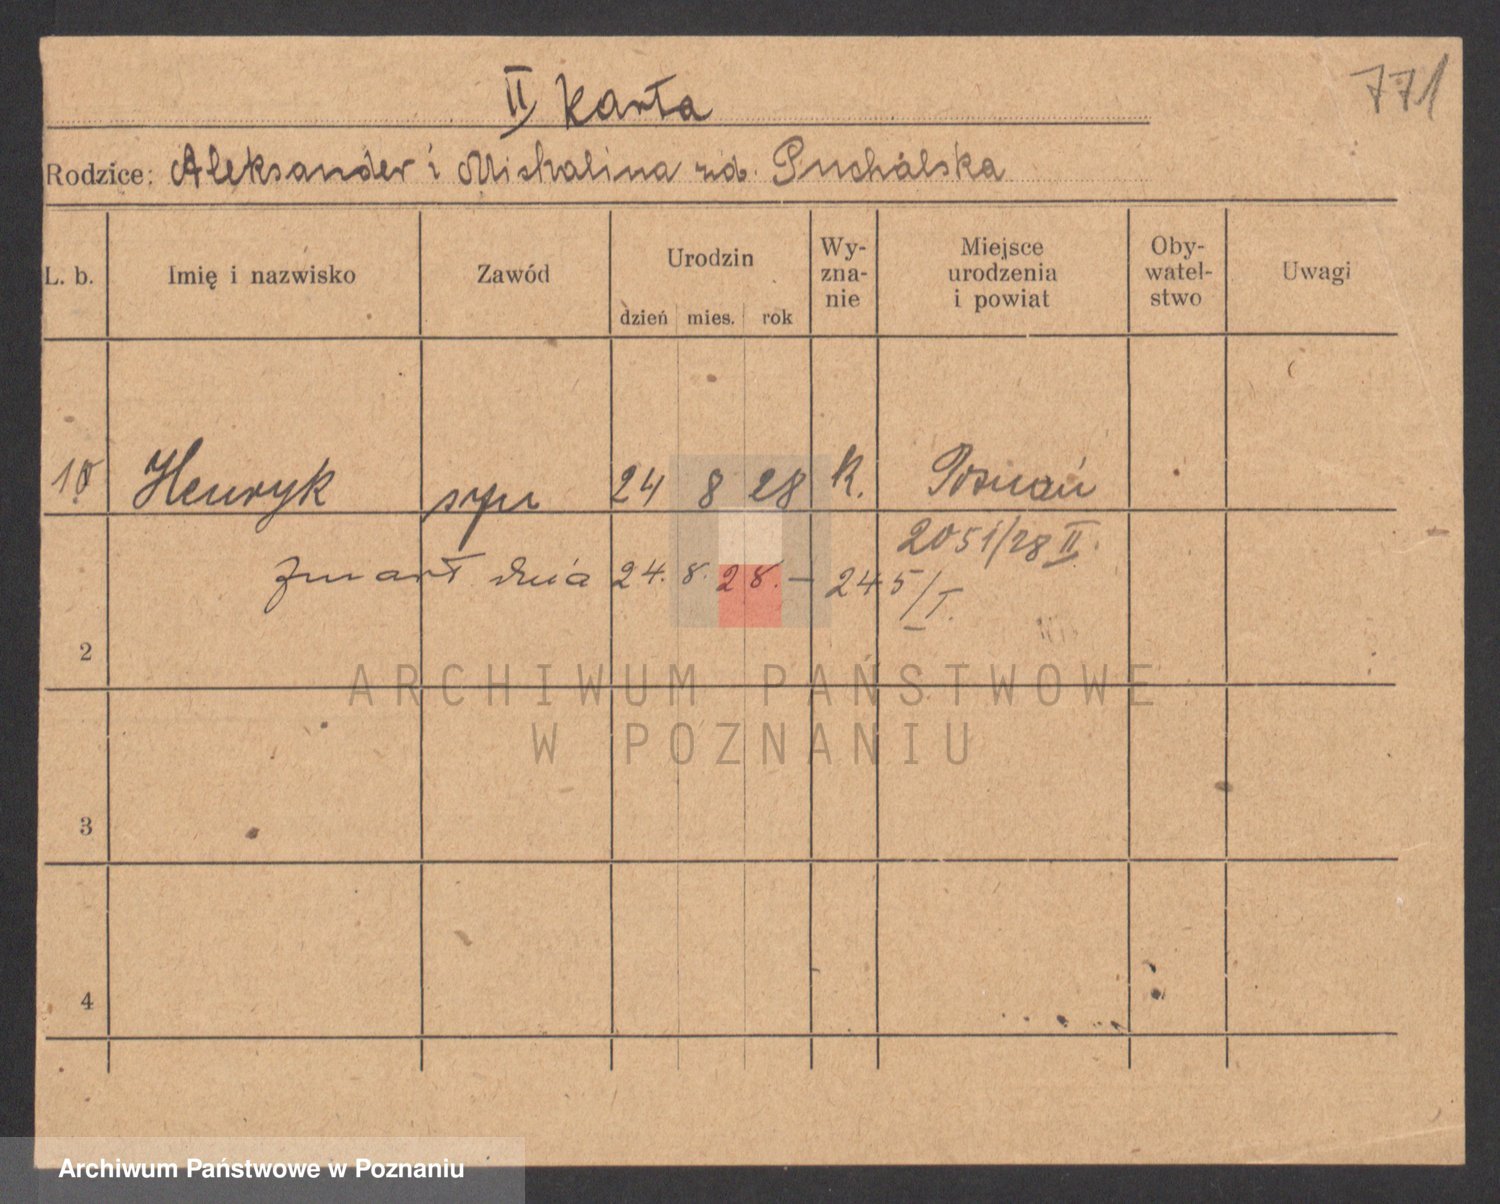 771
II karta
Rodzice: Aleksander i Michalina zd. Puchalska
L. b. Imię i nazwisko Zawód Urodzin Wy- Miejsce Oby- Uwagi
zna- urodzenia watel-
nie i powiat stwo
dzień mies. rok
10 Henryk syn 24 8 28 R. Poznań
2051/28 II.
zmarł dnia 24. 8. 28. – 245/I.
2
ARCHIWUM PAŃSTWOWE
W POZNANIU
3
4
Archiwum Państwowe w Poznaniu